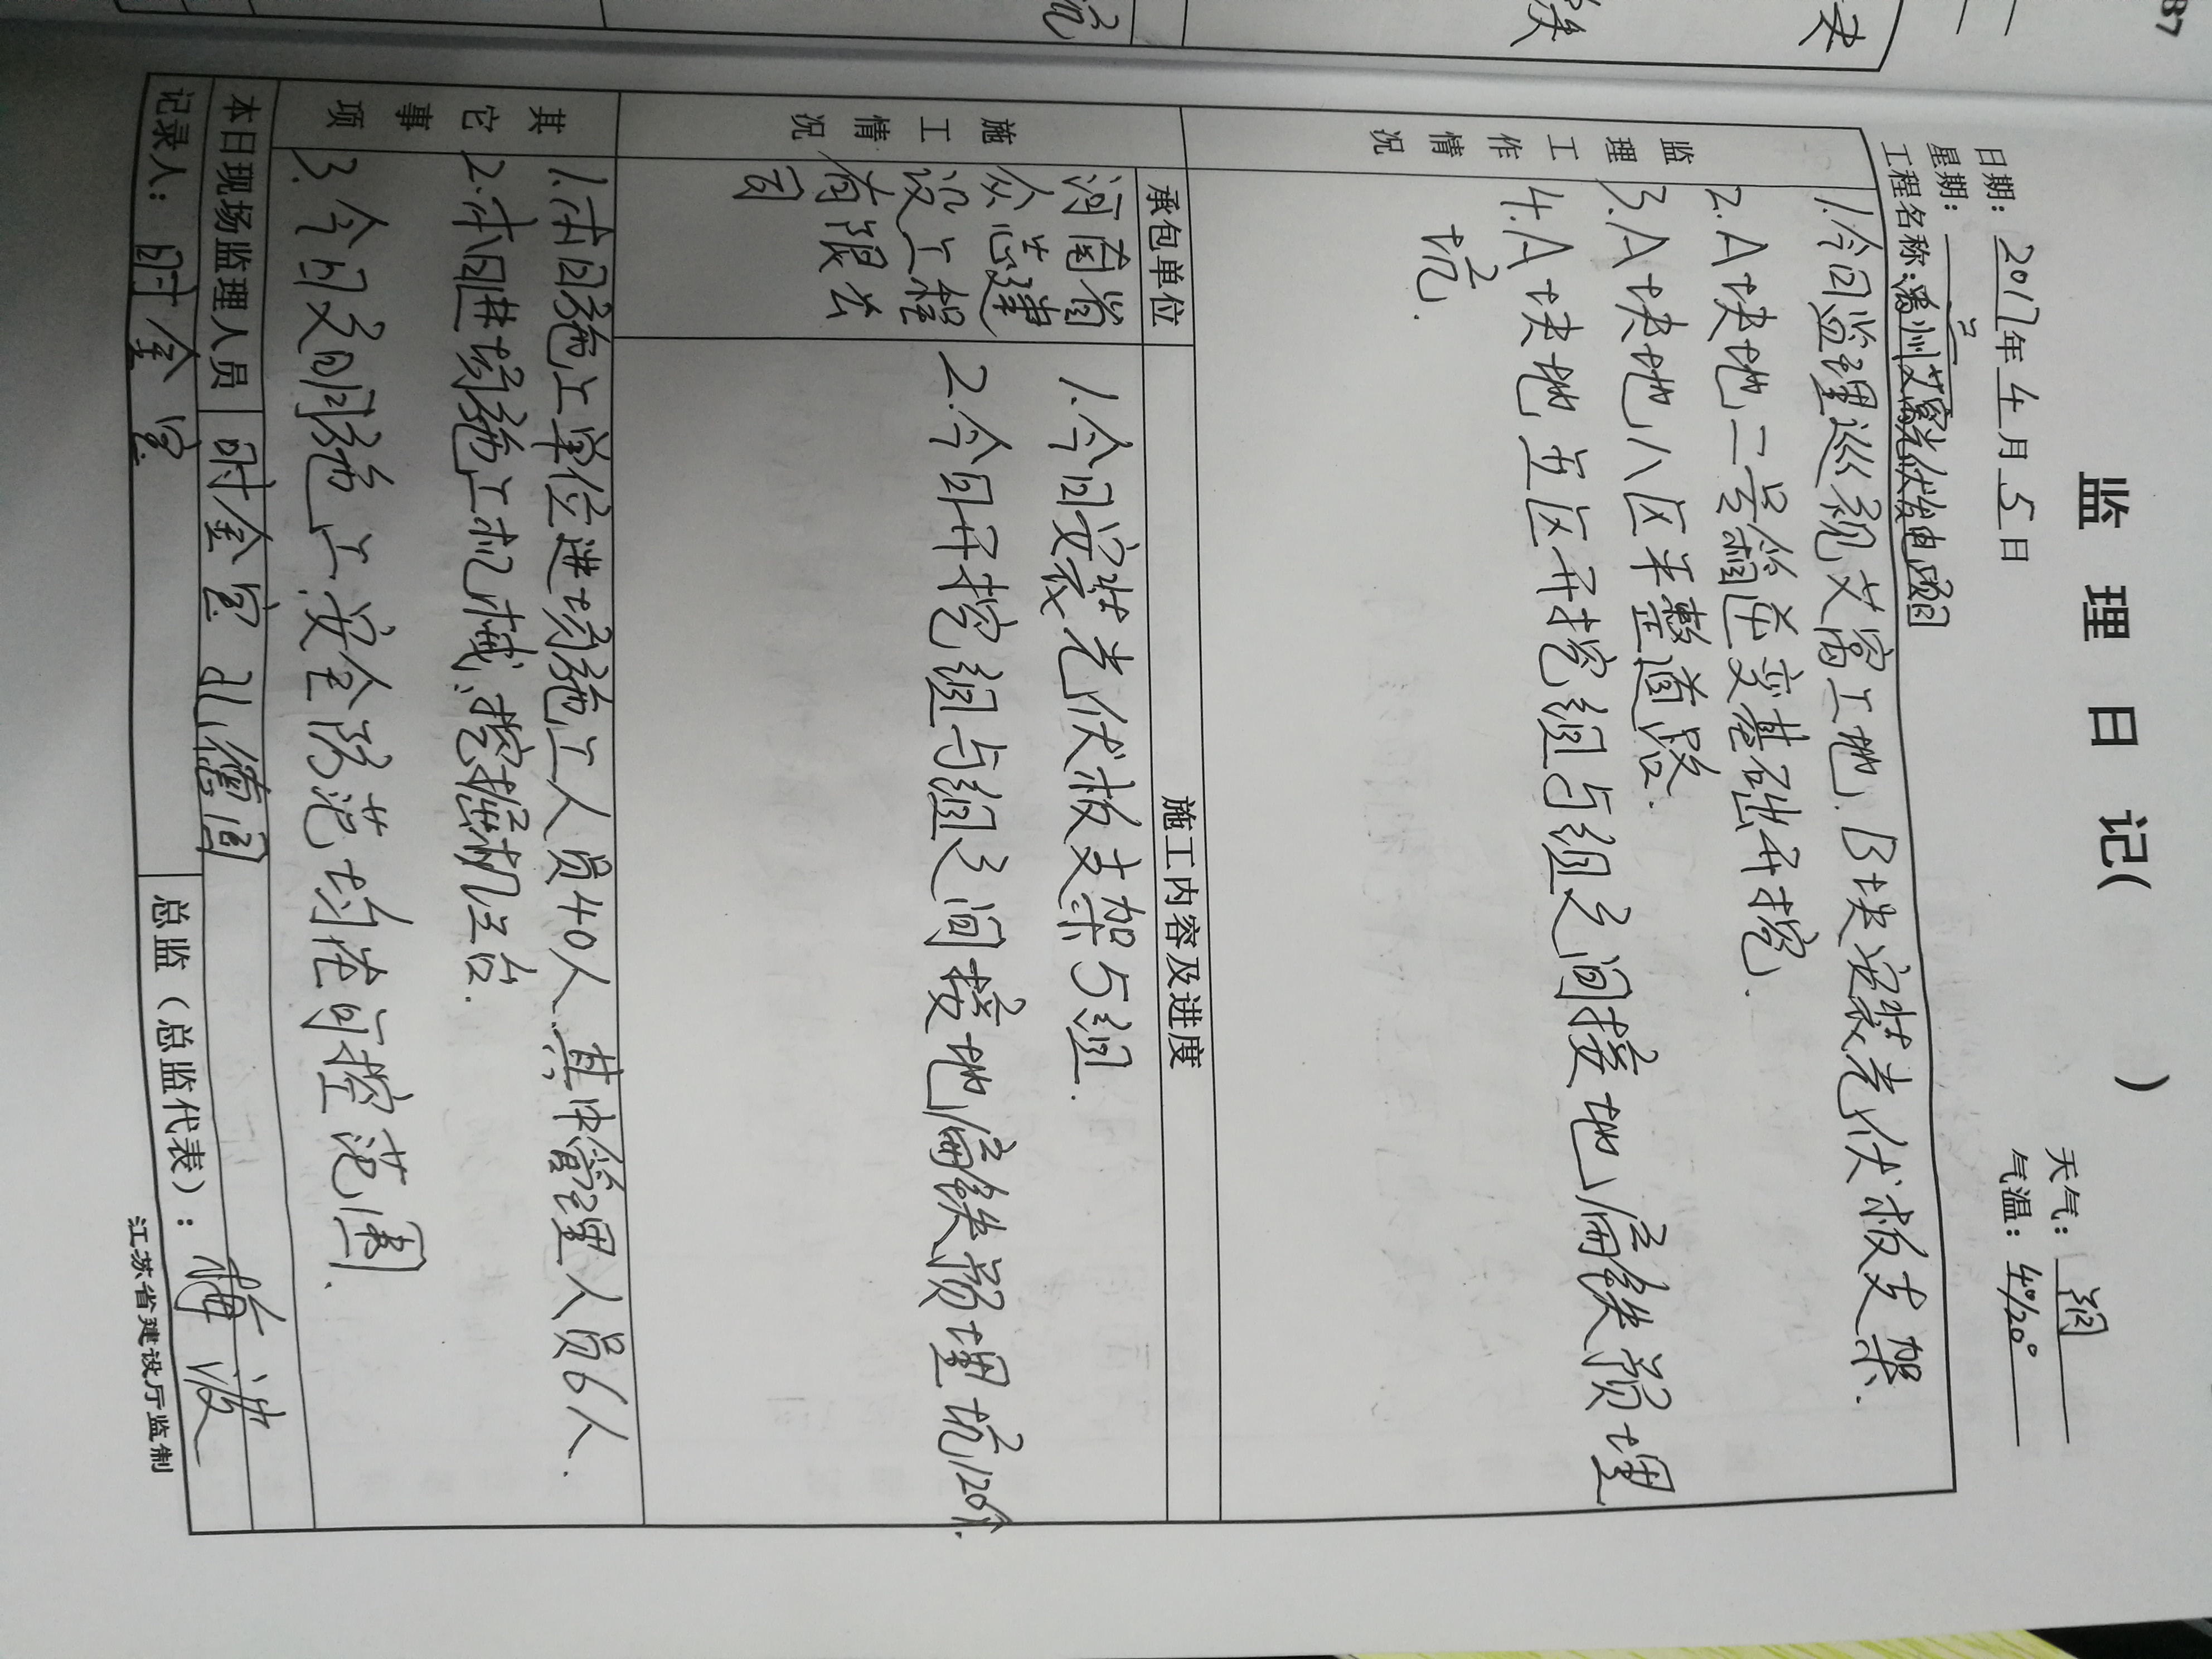 监 理 日 记( )
日期: 2017年4月5日
天气: 阴
星期: 三
气温: 4°/20°
监理工作情况
1.今日监理巡视艾窝工地、B块安装光伏板支架.
2.A块地二号箱逆变基础开挖.
3.A块地八区平整道路.
4.A块地五区开挖组与组之间接地扁铁预埋
坑.
施工情况
承包单位
施工内容及进度
河南省
众芯建
设工程
有限公
司
1.今日安装光伏板支架5组.
2.今日开挖组与组之间接地扁铁预埋坑120个.
其它事项
1.本日施工单位进场施工人员40人.其中管理人员6人.
2.本日进场施工机械.挖掘机三台.
3.今日文明施工.安全防范均在可控范围.
本日现场监理人员
时金宝 孔德
记录人: 时金宝
总监(总监代表):
江苏省建设厅监制
87